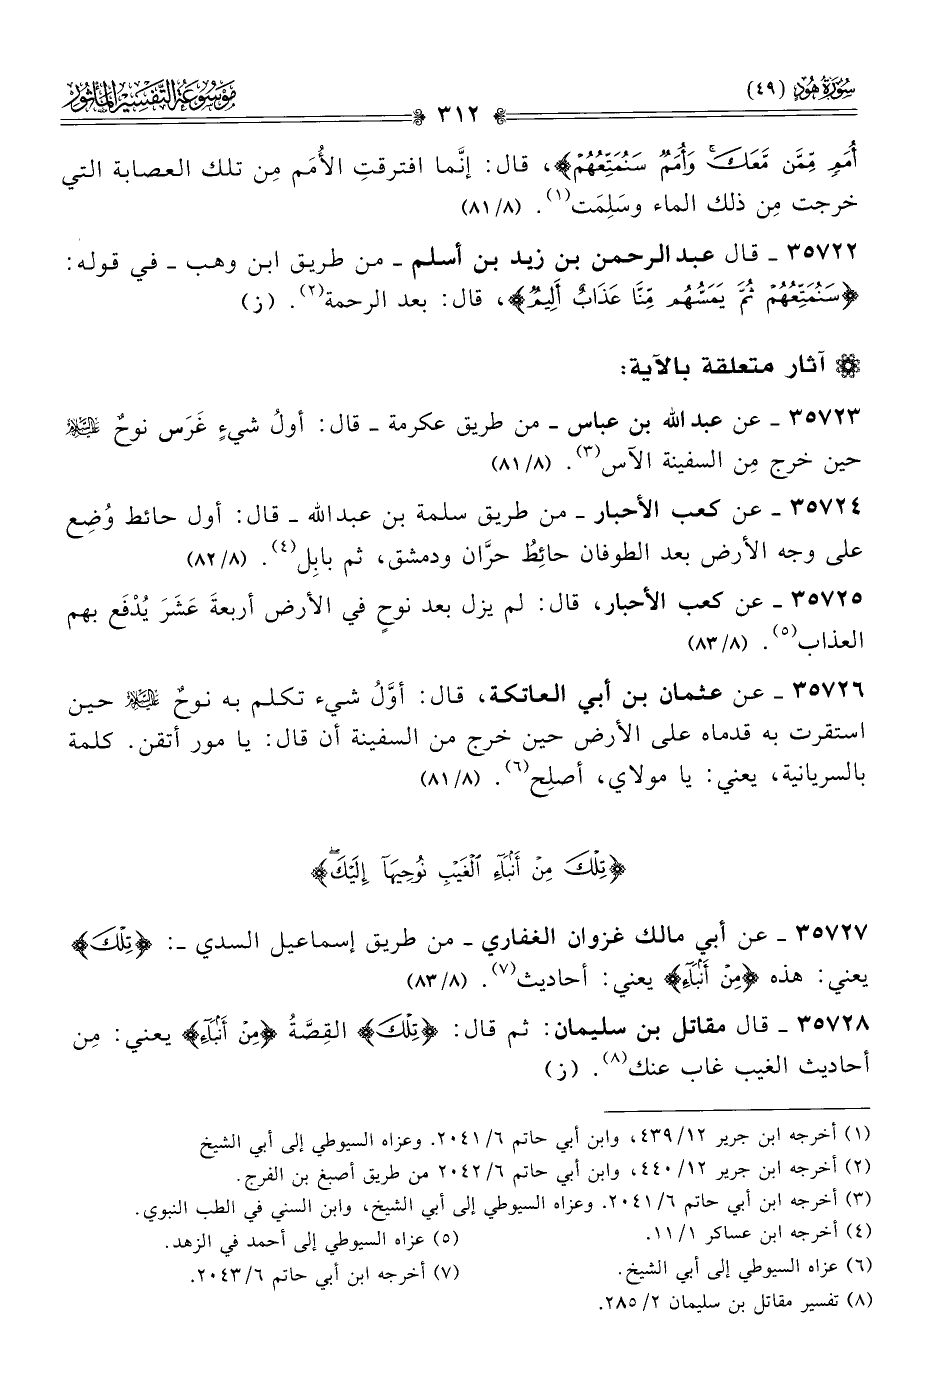 سُورَةُ هُودٍ (٤٩)
٣١٢
مَوْسُوعَة التَّفْسِير المَأْثُور
أُمَمٍ مِّمَّن مَّعَكَ ۚ وَأُمَمٌ سَنُمَتِّعُهُمْ﴾، قال: إنَّما افترقتِ الأُمَم مِن تلك العصابة التي
خرجت مِن ذلك الماء وسَلِمَت(١). (٨١/٨)
٣٥٧٢٢ ـ قال عبدالرحمن بن زيد بن أسلم ـ من طريق ابن وهب ـ في قوله:
﴿سَنُمَتِّعُهُمْ ثُمَّ يَمَسُّهُم مِّنَّا عَذَابٌ أَلِيمٌ﴾، قال: بعد الرحمة(٢). (ز)
آثار متعلقة بالآية:
٣٥٧٢٣ ـ عن عبدالله بن عباس ـ من طريق عكرمة ـ قال: أولُ شيءٍ غَرَس نوحٌ عليه السلام
حين خرج مِن السفينة الآس(٣). (٨١/٨)
٣٥٧٢٤ ـ عن كعب الأحبار ـ من طريق سلمة بن عبدالله ـ قال: أول حائط وُضِع
على وجه الأرض بعد الطوفان حائِطُ حرَّان ودمشق، ثم بابِل(٤). (٨٢/٨)
٣٥٧٢٥ ـ عن كعب الأحبار، قال: لم يزل بعد نوحٍ في الأرض أربعةَ عَشَرَ يُدْفَع بهم
العذاب(٥). (٨٣/٨)
٣٥٧٢٦ ـ عن عثمان بن أبي العاتكة، قال: أوَّلُ شيء تكلم به نوحٌ عليه السلام حين
استقرت به قدماه على الأرض حين خرج من السفينة أن قال: يا مور أتقن. كلمة
بالسريانية، يعني: يا مولاي، أصلِح(٦). (٨١/٨)
﴿تِلْكَ مِنْ أَنۢبَآءِ ٱلْغَيْبِ نُوحِيهَآ إِلَيْكَ ۖ﴾
٣٥٧٢٧ ـ عن أبي مالك غزوان الغفاري ـ من طريق إسماعيل السدي ـ: ﴿تِلْكَ﴾
يعني: هذه ﴿مِنْ أَنۢبَآءِ﴾ يعني: أحاديث(٧). (٨٣/٨)
٣٥٧٢٨ ـ قال مقاتل بن سليمان: ثم قال: ﴿تِلْكَ﴾ القِصَّةُ ﴿مِنْ أَنۢبَآءِ﴾ يعني: مِن
أحاديث الغيب غاب عنك(٨). (ز)
(١) أخرجه ابن جرير ٤٣٩/١٢، وابن أبي حاتم ٢٠٤١/٦. وعزاه السيوطي إلى أبي الشيخ
(٢) أخرجه ابن جرير ٤٤٠/١٢، وابن أبي حاتم ٢٠٤٢/٦ من طريق أصبغ بن الفرج.
(٣) أخرجه ابن أبي حاتم ٢٠٤١/٦. وعزاه السيوطي إلى أبي الشيخ، وابن السني في الطب النبوي.
(٤) أخرجه ابن عساكر ١١/١.
(٥) عزاه السيوطي إلى أحمد في الزهد.
(٦) عزاه السيوطي إلى أبي الشيخ.
(٧) أخرجه ابن أبي حاتم ٢٠٤٣/٦.
(٨) تفسير مقاتل بن سليمان ٢٨٥/٢.